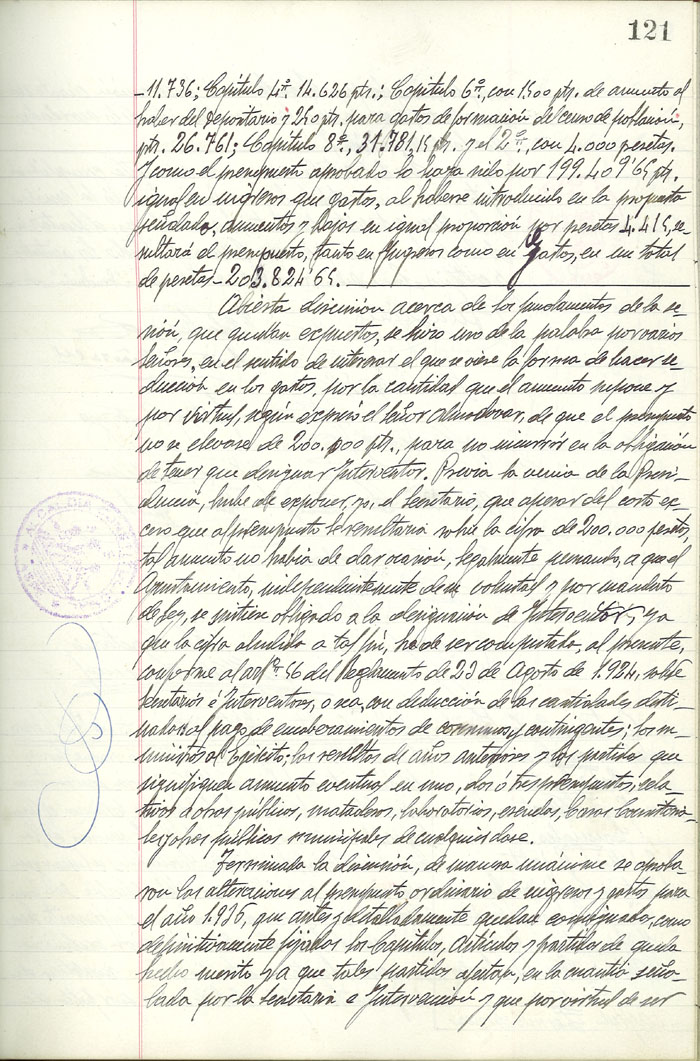 121
-11.736; Capítulo 4º. 14.626 pts.; Capítulo 6º, con 1500 pts. de aumento al
haber del depositario y 250 pts. para gastos de formación del censo de población,
pts. 26.761; Capítulo 8º, 31.781,15 pts. y el 2º, con 4.000 pesetas.
Y como el presupuesto aprobado lo haya sido por 199.409'65 pts.
igual en ingresos que gastos, al haberse introducido en la propuesta
señalada, aumentos y bajas en igual proporción por pesetas 4.415, re-
sultará el presupuesto, tanto en Ingresos como en gastos, en un total
de pesetas - 203.824'65.
Abierta discusión acerca de los fundamentos de la se-
sión, que quedan expuestos, se hizo uso de la palabra por varios
señores, en el sentido de interesar el que se viese la forma de hacer re-
ducción en los gastos, por la cantidad que el aumento supone y
por virtud, según expresó el señor Almodovar, de que el presupuesto
no se elevase de 200.000 pts., para no incurrir en la obligación
de tener que designar Interventor. Previa la venia de la Presi-
dencia, hube de exponer, yo, el Secretario, que apesar del corto ex-
ceso que al presupuesto le resultaría sobre la cifra de 200.000 pesetas,
tal aumento no había de dar ocasión, legalmente pensando, a que el
Ayuntamiento, independientemente de su voluntad y por mandato
de Ley, se sintiese obligado a la designación de Interventor, ya
que la cifra aludida a tal fin, ha de ser computada, al presente,
conforme al artº. 56 del Reglamento de 23 de Agosto de 1.924, sobre
Secretarios é Interventores, o sea, con deducción de las cantidades desti-
nadas al pago de encabezamientos de consumos y contingentes; los su-
ministros al Ejército; las resultas de años anteriores y las partidas que
signifiquen aumento eventual en uno, dos ó tres presupuestos, rela-
tivos a obras públicas, mataderos, laboratorios, escuelas, Casas Consistoria-
les y obras públicas municipales de cualquier clase.
Terminada la discusión, de manera unánime se aproba-
ron las alteraciones al presupuesto ordinario de ingresos y gastos para
el año 1.936, que antes y detalladamente quedan consignadas, como
definitivamente fijados los Capítulos, Artículos y partidas de que da
hecho merito ya que tales partidas afectan, en la cuantía seña-
lada por la Secretaria e Intervención y que por virtud de ser